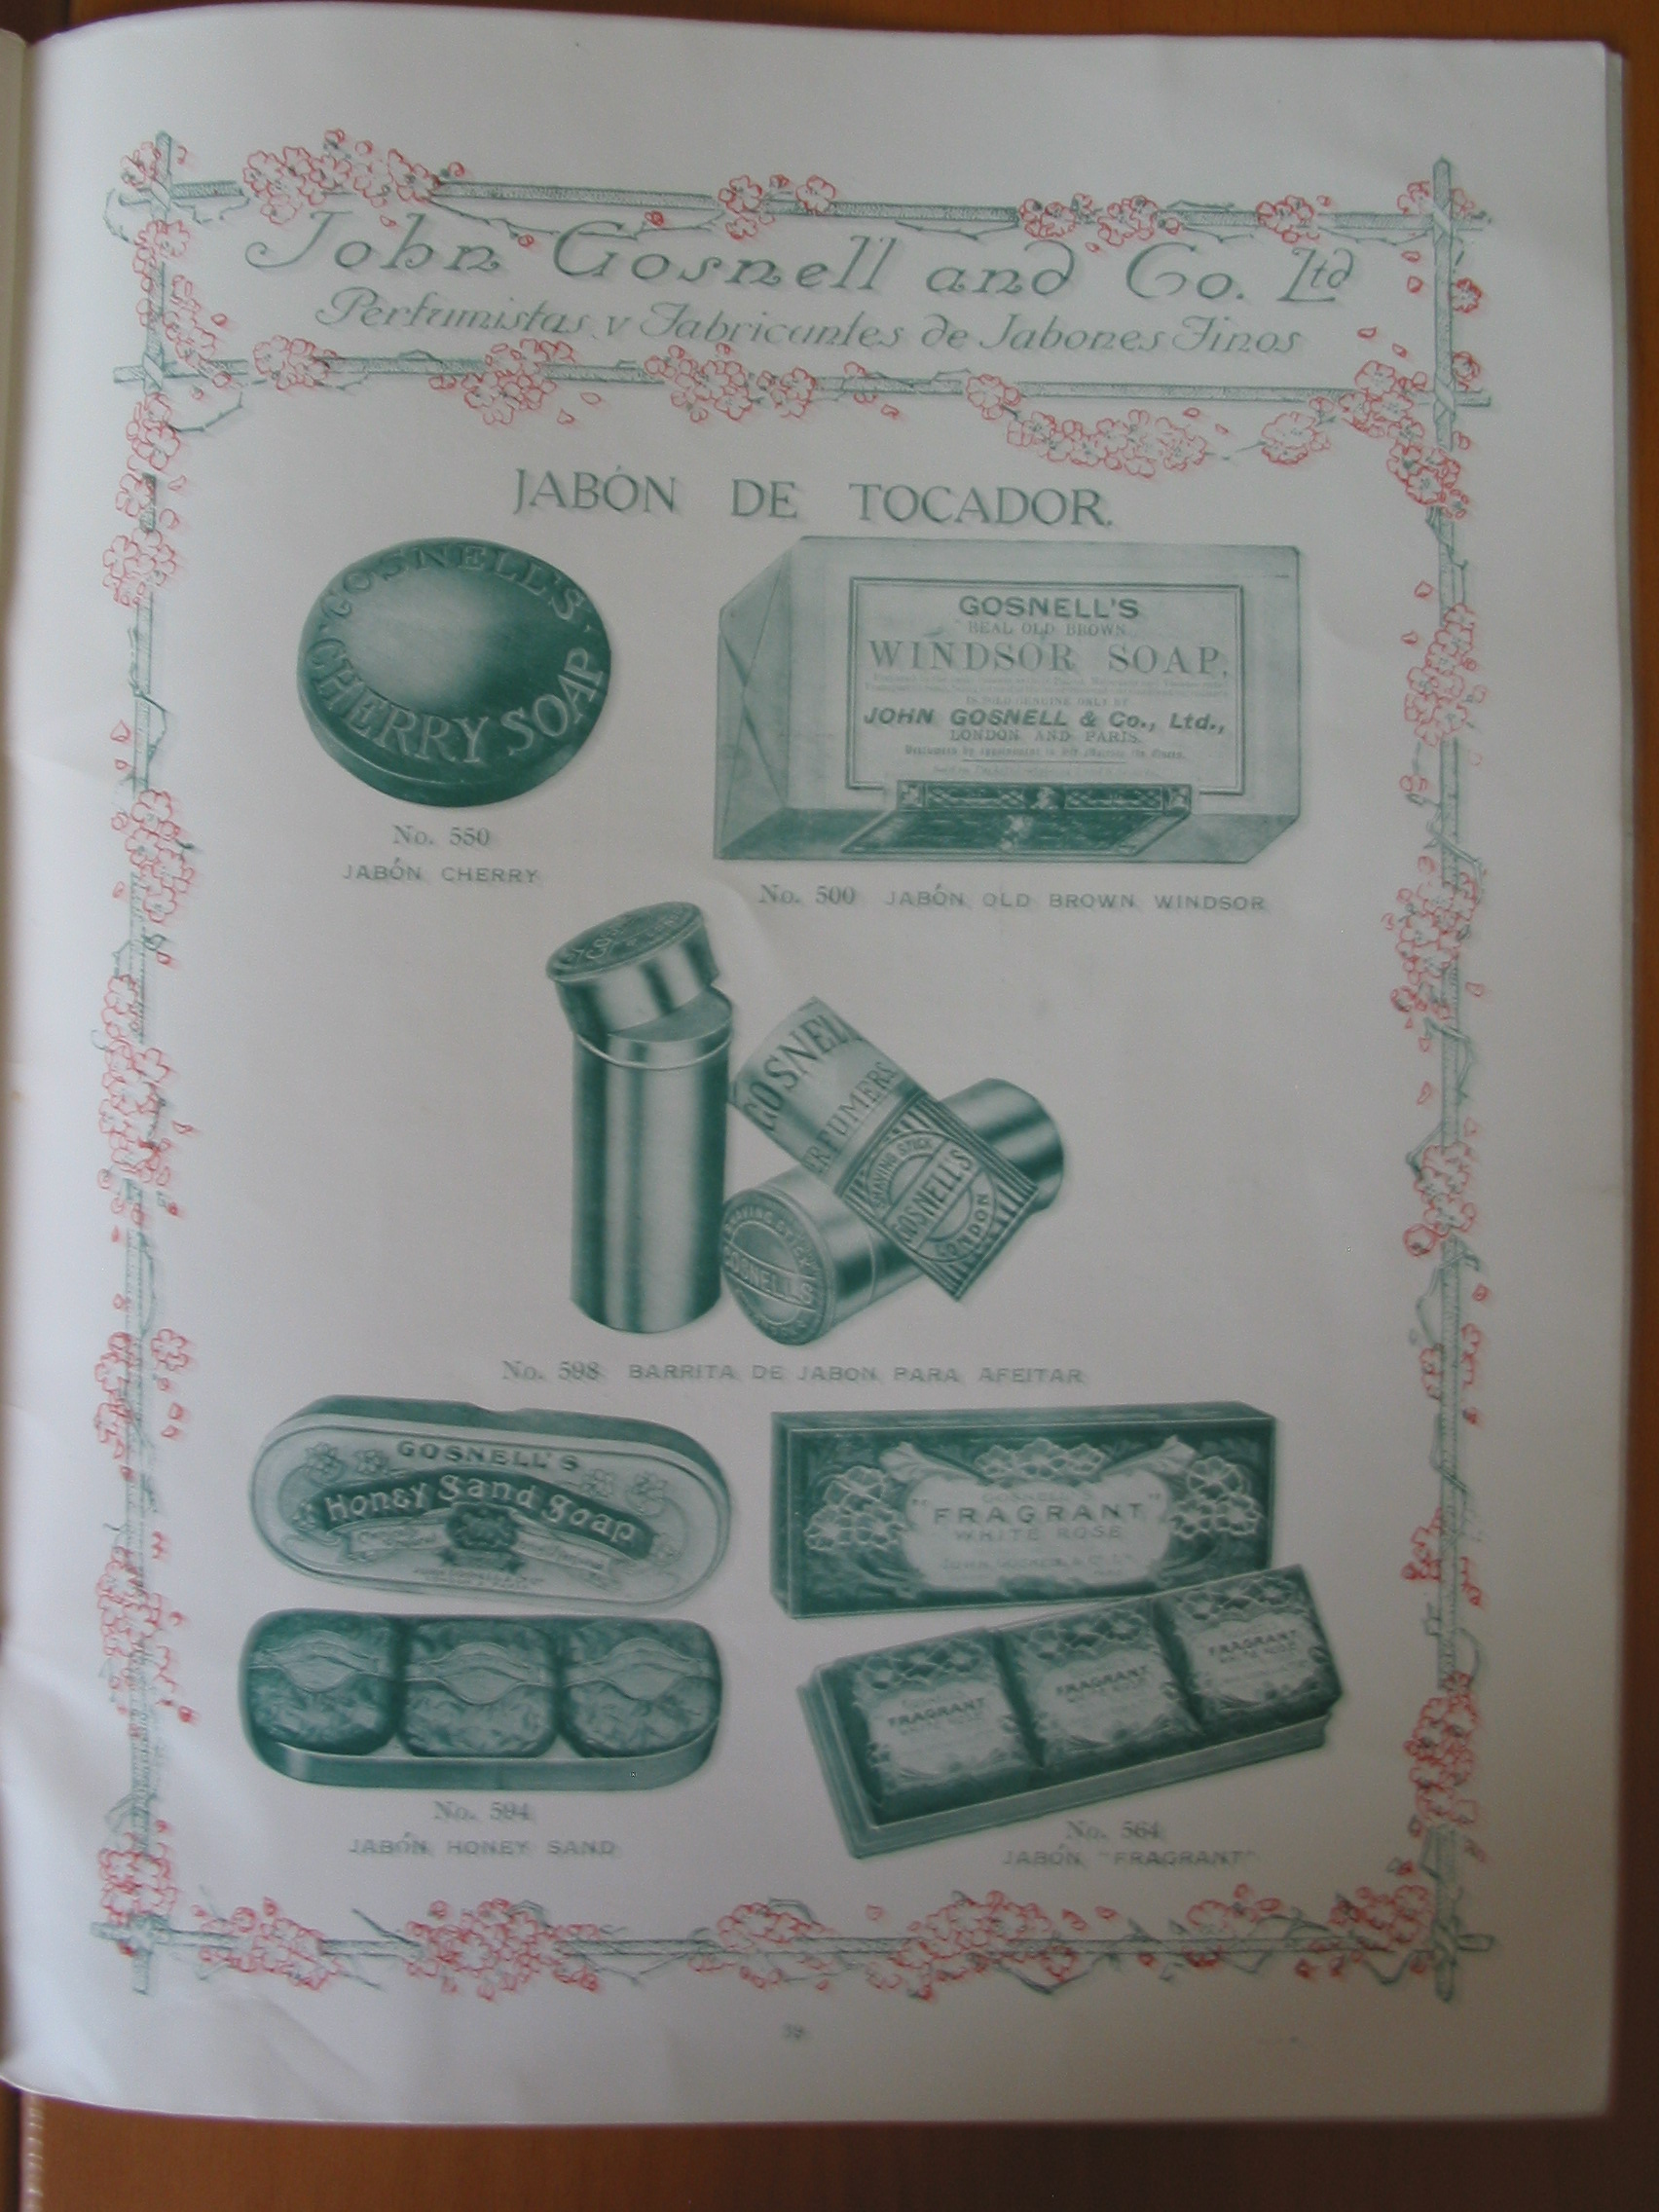 John Gosnell and Co. Ltd
Perfumistas y Fabricantes de Jabones Finos
JABÓN DE TOCADOR.
GOSNELL'S
CHERRY SOAP
No. 550
JABÓN CHERRY
GOSNELL'S
REAL OLD BROWN
WINDSOR SOAP,
IS SOLD GENUINE ONLY BY
JOHN GOSNELL & Co., Ltd.,
LONDON AND PARIS.
No. 500 JABÓN OLD BROWN WINDSOR
GOSNELL
ERFUMERS
SHAVING STICK
GOSNELL'S
LONDON
SHAVING STICK
GOSNELL'S
No. 598 BARRITA DE JABON PARA AFEITAR
GOSNELL'S
Honey Sand Soap
No. 594
JABÓN HONEY SAND
GOSNELL'S
"FRAGRANT"
WHITE ROSE
FRAGRANT
WHITE ROSE
FRAGRANT
WHITE ROSE
FRAGRANT
WHITE ROSE
No. 564
JABÓN "FRAGRANT"